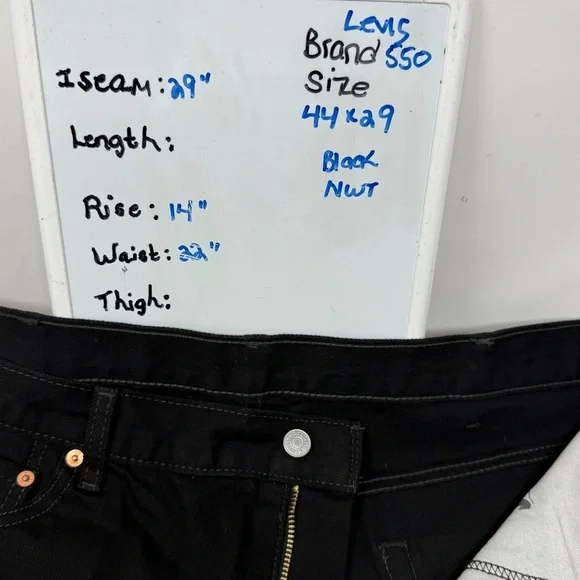 Levis
Brand 550
Iseam: 29"
Size
44x29
Length:
Black
NWT
Rise: 14"
Waist: 22"
Thigh: